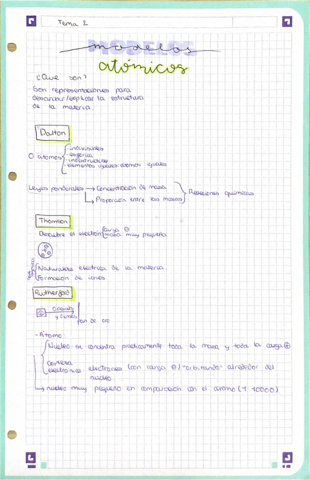 Tema 2
MODELOS
modelos
atómicos
¿Que son?
Son representaciones para
describir/explicar la estructura
de la materia
Dalton
O átomos
- indivisibles
- esférica
- indestructible
elementos iguales átomos iguales
Leyes ponderales → Concentración de masa
→ Proporción entre las masas
Reacciones químicas
Thomson
Descubre el electrón
carga ⊖
masa muy pequeña
Naturaleza eléctrica de la materia
Formación de iones
Rutherford
pan de oro
- Átomo:
Núcleo se concentra prácticamente toda la masa y toda la carga ⊕
corteza
electrones electrones (con carga ⊖) "orbitando" alrededor del
núcleo
→ núcleo muy pequeño en comparación con el átomo (1 10000)